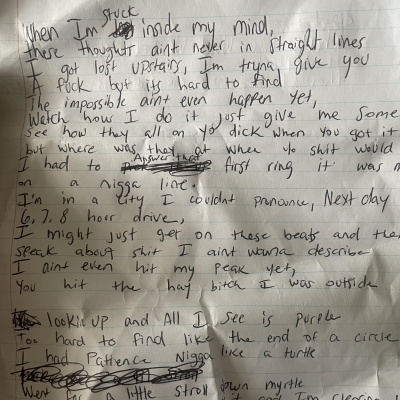 When I'm stuck inside my mind,
these thoughts aint never in straight lines
I got lost upstairs, I'm tryna give you
A fuck but its hard to find
The impossible aint even happen yet,
Watch how I do it just give me some
see how they all on yo dick when you got it
but where was they at when yo shit would
I had to Answer that first ring it was
on a nigga line.
I'm in a city I couldnt pronounce, Next day
6, 7, 8 hour drive,
I might just get on these beats and
speak about shit I aint wanna describe
I aint even hit my peak yet,
You hit the hay bitch I was outside
lookin up and All I see is purple
Too hard to find like the end of a circle
I had Patience Nigga like a turtle
Went for a little stroll down myrtle
and I'm